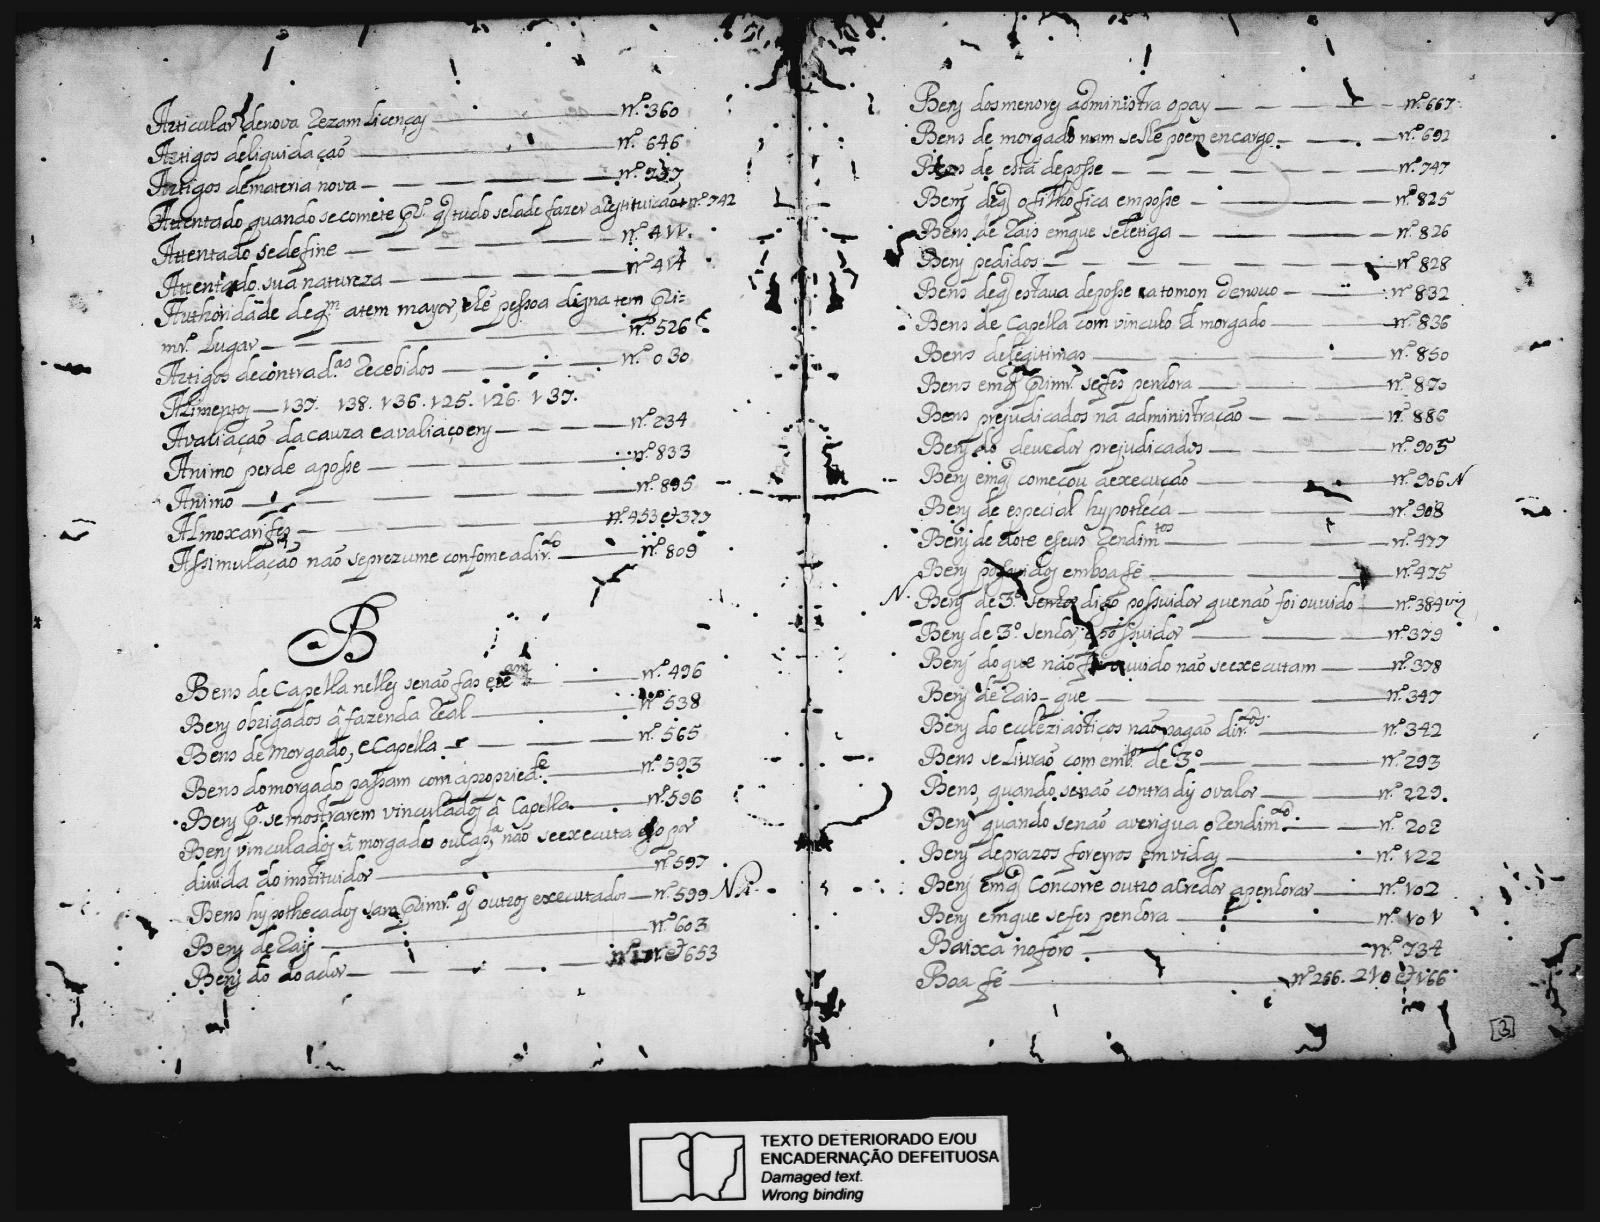 Articular denova Rezam Licenças — nº 360
Artigos deliquidação — nº 646
Artigos demateria nova — nº 737
Attentado quando se comete prº. q̃ tudo selade fazer arestituição nº 742
Attentado sedefine — nº 411.
Attentado. sua natureza — nº 414
Authoridade deqm̃ atem mayor, ele pessoa digna tem Pri=
mrº Lugar — nº 526
Artigos decontrad.as Recebidos — nº 030
Alimentos — 137. 138. 136. 125. 126. 137.
Avaliação dacauza eavaliaçoens — nº 234
Animo perde aposse — nº 833
Animo — nº 895
Almoxarifes — nº 453 et 377
Assimulação não seprezume confome adir.to — nº 809
B
Bens de Capella nelles senão fas — nº 496
Bens obrigados â fazenda Real — nº 538
Bens de Morgado, e Capella — nº 565
Bens domorgado passam com apropried.e — nº 593
Bens p.a se mostrarem vinculados â Capella — nº 596
Bens vinculados â morgado oucap.a não seexecuta por
divida do instituidor — nº 597
Bens hypothecados sam Primrº q̃ outros executados — nº 599 Na
Bens de Rais — nº 603
Bens do doador — et 653
Bens dosmenores administra opay — nº 667
Bens de morgado num selle poem encargo — nº 692
Bens de está deposse — nº 747
Bens deq̃ ofilho fica emposse — nº 825
Bens de Rais emque seletiga — nº 826
Bens pedidos — nº 828
Bens deq̃ estava deposse eatomou denovo — nº 832
Bens de Capella com vinculo d morgado — nº 836
Bens delegitimas — nº 850
Bens emq̃ Primrº sefes penhora — nº 870
Bens prejudicados na administração — nº 886
Bens do devedor prejudicados — nº 905
Bens emq̃ começou aexecução — nº 906 N
Bens de especial hypotheca — nº 908
Bens de dote eseus Rendim.tos — nº 477
Bens possuidos emboafé — nº 475
N. Bens de 3.º senhor digo possuidor quenão foi ouvido — nº 384
Bens de 3.º senhor, possuidor — nº 379
Bens do que não foi ouvido não seexecutam — nº 378
Bens de Rais - que — nº 347
Bens do eccleziasticos não pagão dir.tos — nº 342
Bens se Livrão com emb.os de 3.º — nº 293
Bens, quando senão contradis ovalor — nº 229.
Bens quando senão averigua oRendim.to — nº 202
Bens deprazos foreyros emvidas — nº 122
Bens emq̃ Concorre outro acredor apenhorar — nº 102
Bens emque sefes penhora — nº 101
Baixa noforo — nº 734
Boa fé — nº 266. 210 et 166
[3]
TEXTO DETERIORADO E/OU
ENCADERNAÇÃO DEFEITUOSA
Damaged text.
Wrong binding